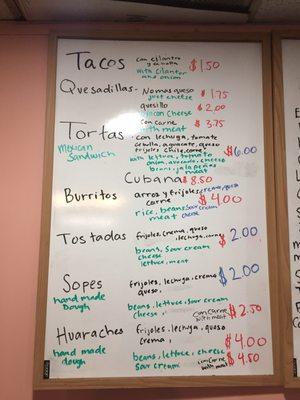 Tacos con cilantro y cebolla $1.50
with cilantro and onion
Quesadillas- No mas queso $1.75
just cheese
quesillo $2.00
oaxacan cheese
con carne $3.75
with meat
Tortas con lechuga, tomate
cebolla, aguacate, queso
frijoles, chile, carne
Mexican Sandwich with lettuce, tomato $6.00
onion, avocado, cheese
beans, jalapeña
meat
Cubana $8.50
Burritos arroz y frijoles, crema, queso
carne $4.00
rice, beans, sour cream
meat cheese
Tostadas frijoles, crema, queso $2.00
, lechuga, carne
beans, sour cream
cheese
lettuce, meat
Sopes frijoles, lechuga, crema $2.00
queso,
hand made
Dough beans, lettuce, sour cream
cheese, con carne $2.50
with meat
Huaraches frijoles, lechuga, queso
crema, $4.00
hand made
dough beans, lettuce, cheese
sour cream con carne $4.50
with meat